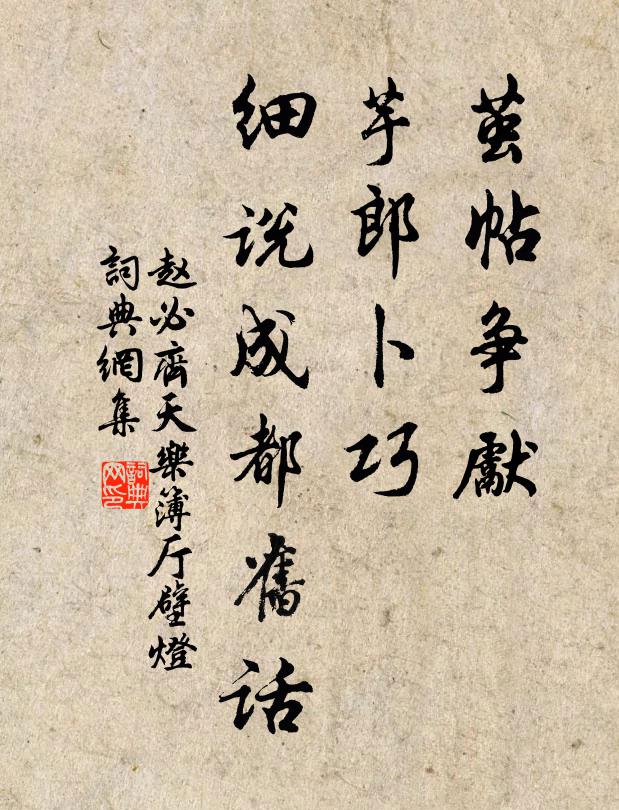 茧帖争獻
芋郎卜巧
细说成都舊话
赵必齊天樂簿厅壁燈
詞典網集
詞典网印